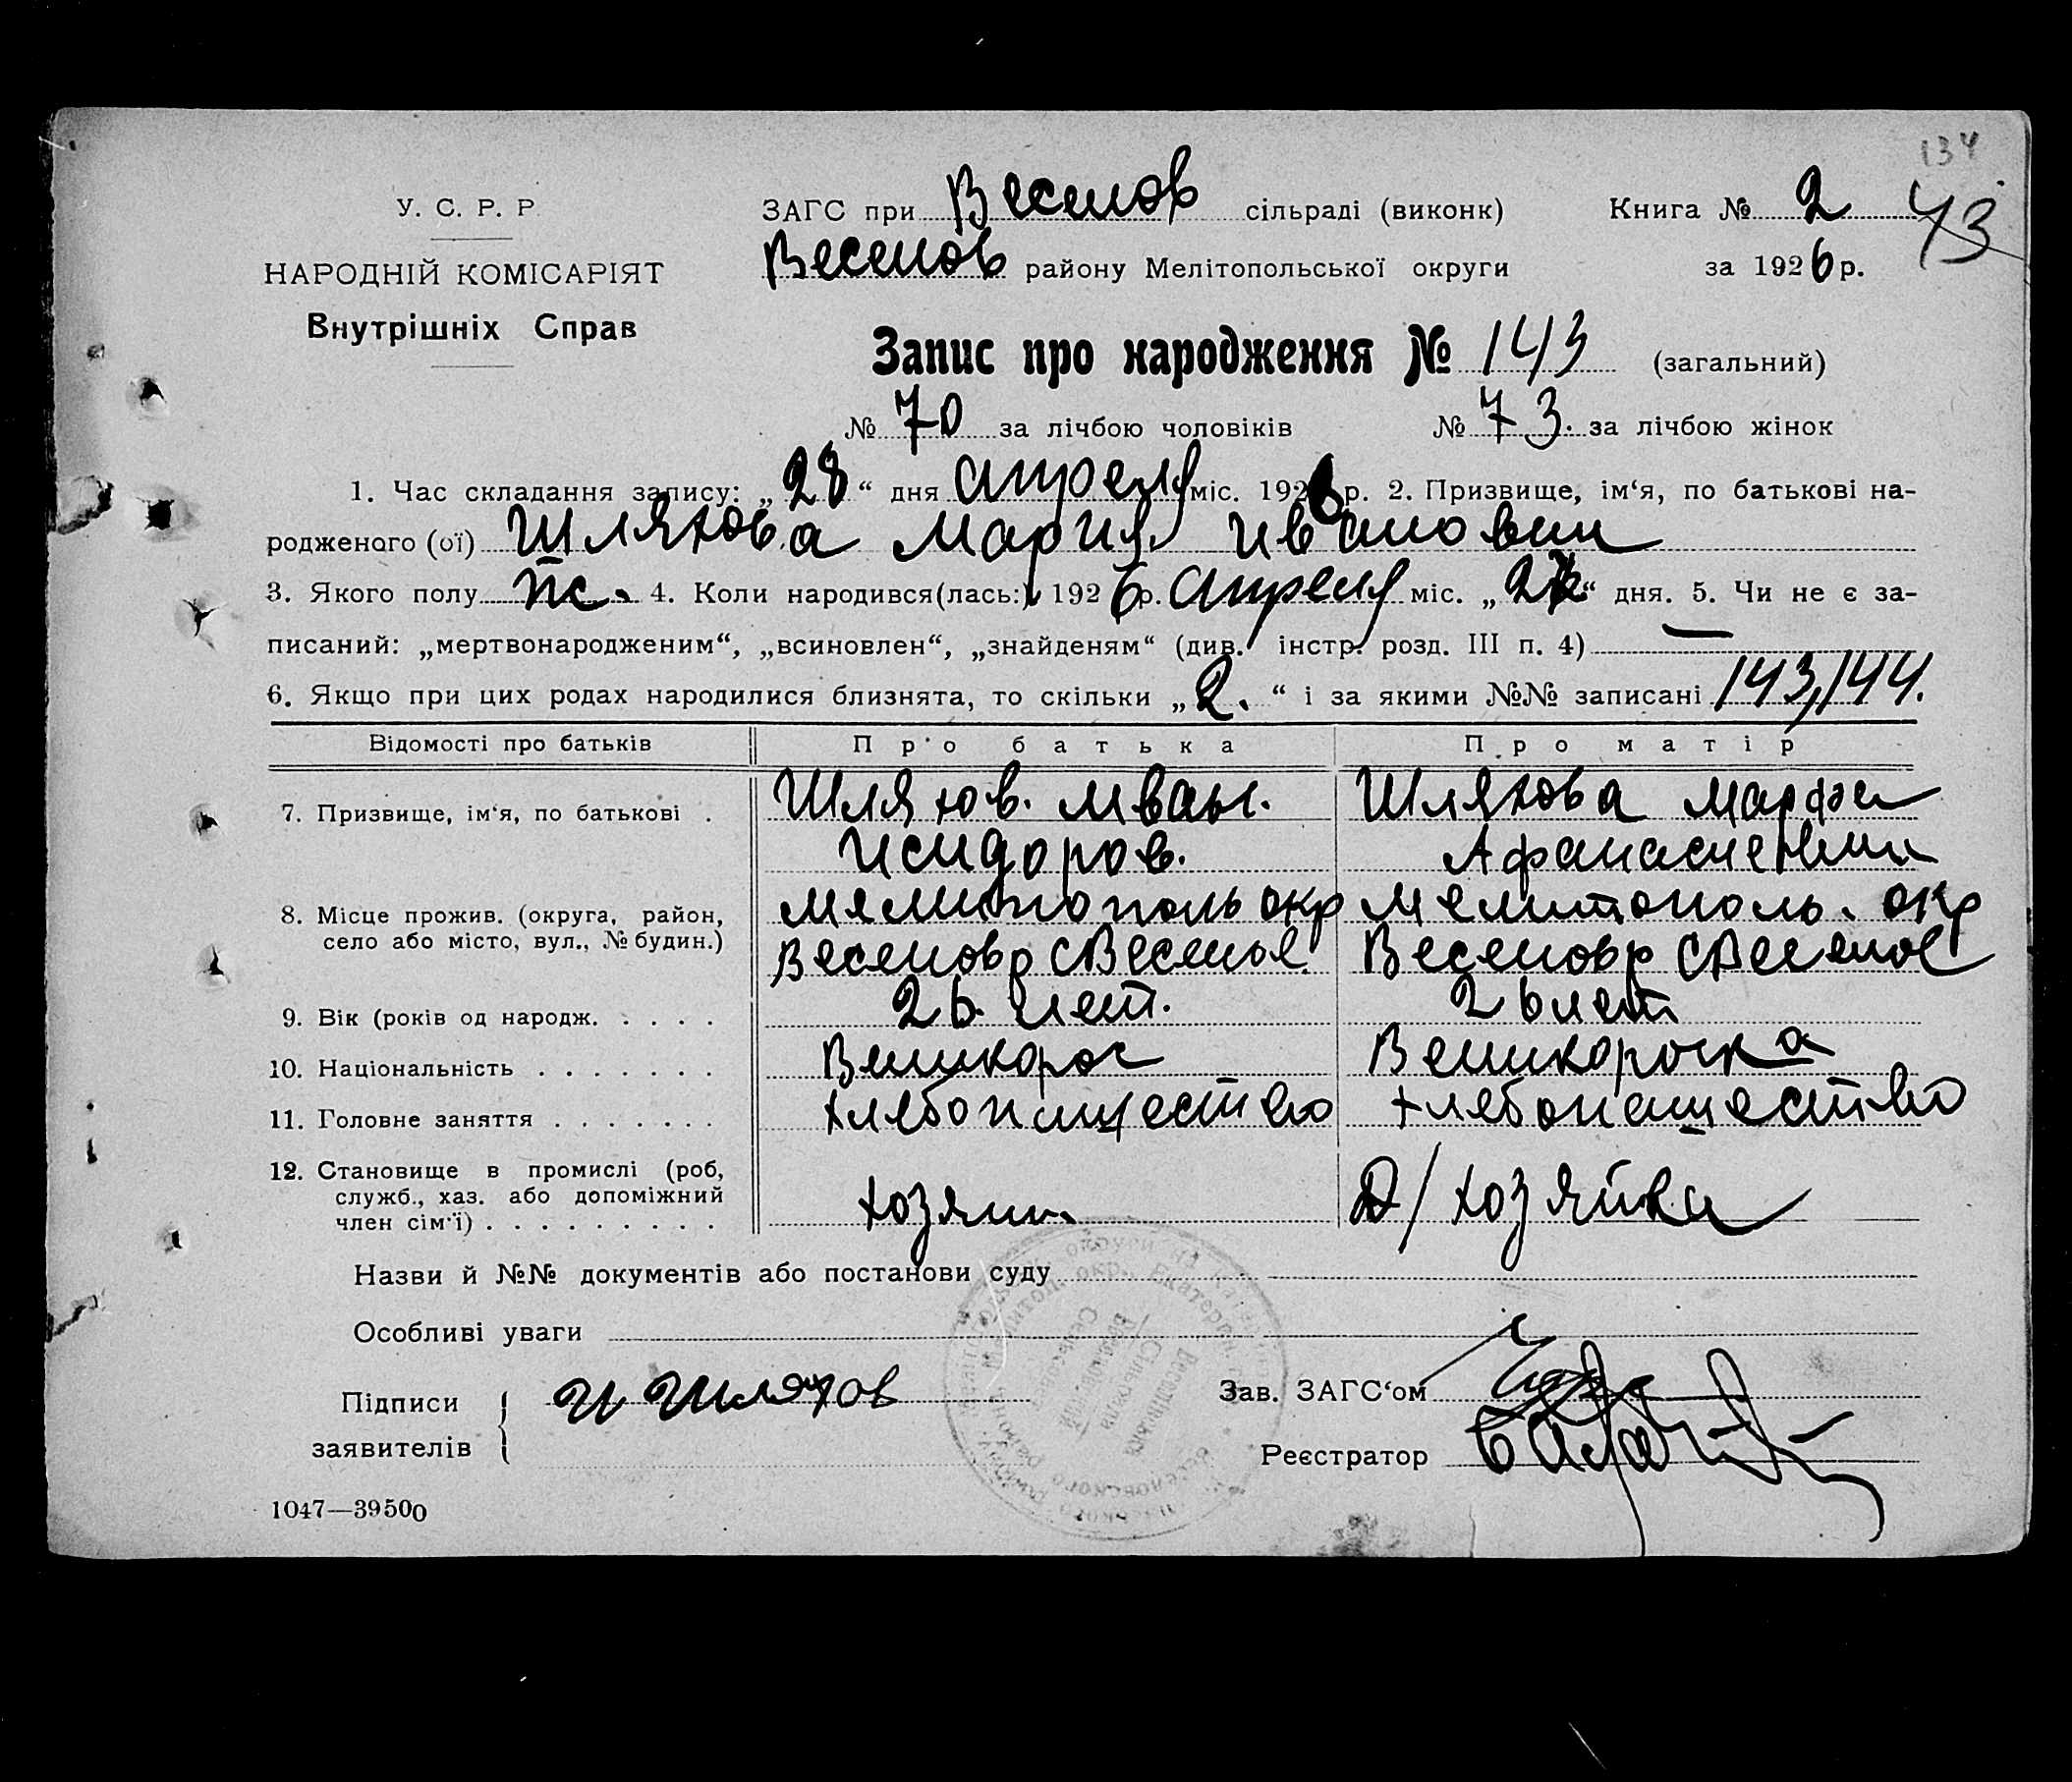 134
У. С. Р. Р.
НАРОДНІЙ КОМІСАРІЯТ
Внутрішніх Справ
ЗАГС при Веселов сільраді (виконк) Книга № 2 43
Веселов району Мелітопольської округи за 1926 р.
Запис про народження № 143 (загальний)
№ 70 за лічбою чоловіків № 73. за лічбою жінок
1. Час складання запису: „28“ дня апреля міс. 1926 р. 2. Призвище, ім‘я, по батькові на-
родженого (ої) Шляхова Мария Ивановн
3. Якого полу ж. 4. Коли народився(лась:) 1926 р. апреля міс. „ “ дня. 5. Чи не є за-
писаний: „мертвонародженим“, „всиновлен“, „знайденям“ (див. інстр. розд. III п. 4) —
6. Якщо при цих родах народилися близнята, то скільки „2.“ і за якими №№ записані 143,144.
Відомості про батьків Про батька Про матір
7. Призвище, ім‘я, по батькові . Шляхов. Иван. Шляхова Марфа
Исидоров. Афанасиевна
8. Місце прожив. (округа, район, Мелитополь окр Мелитополь. окр
село або місто, вул., № будин.) Веселовр с Веселое Веселовр с Веселое
9. Вік (років од народж. . . . . 26 лет. 26 лет
10. Національність . . . . . . . Великорос Великороска
11. Головне заняття . . . . . . . хлебопашество хлебопашество
12. Становище в промислі (роб,
служб., хаз. або допоміжний
член сім‘ї) . . . . . . . . . хозяин Д/хозяйка
Назви й №№ документів або постанови суду
Особливі уваги
Підписи И Шляхов Зав. ЗАГС‘ом
заявителів Реєстратор
1047—39500